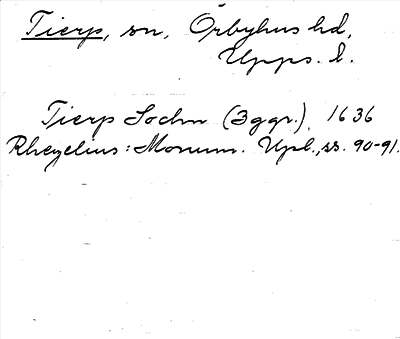 Tierp, sn, Örbyhus hd,
Upps. l.
Tierp Sochn (3 ggr.) 1636
Rhezelius: Monum. Upl., ss. 90-91.